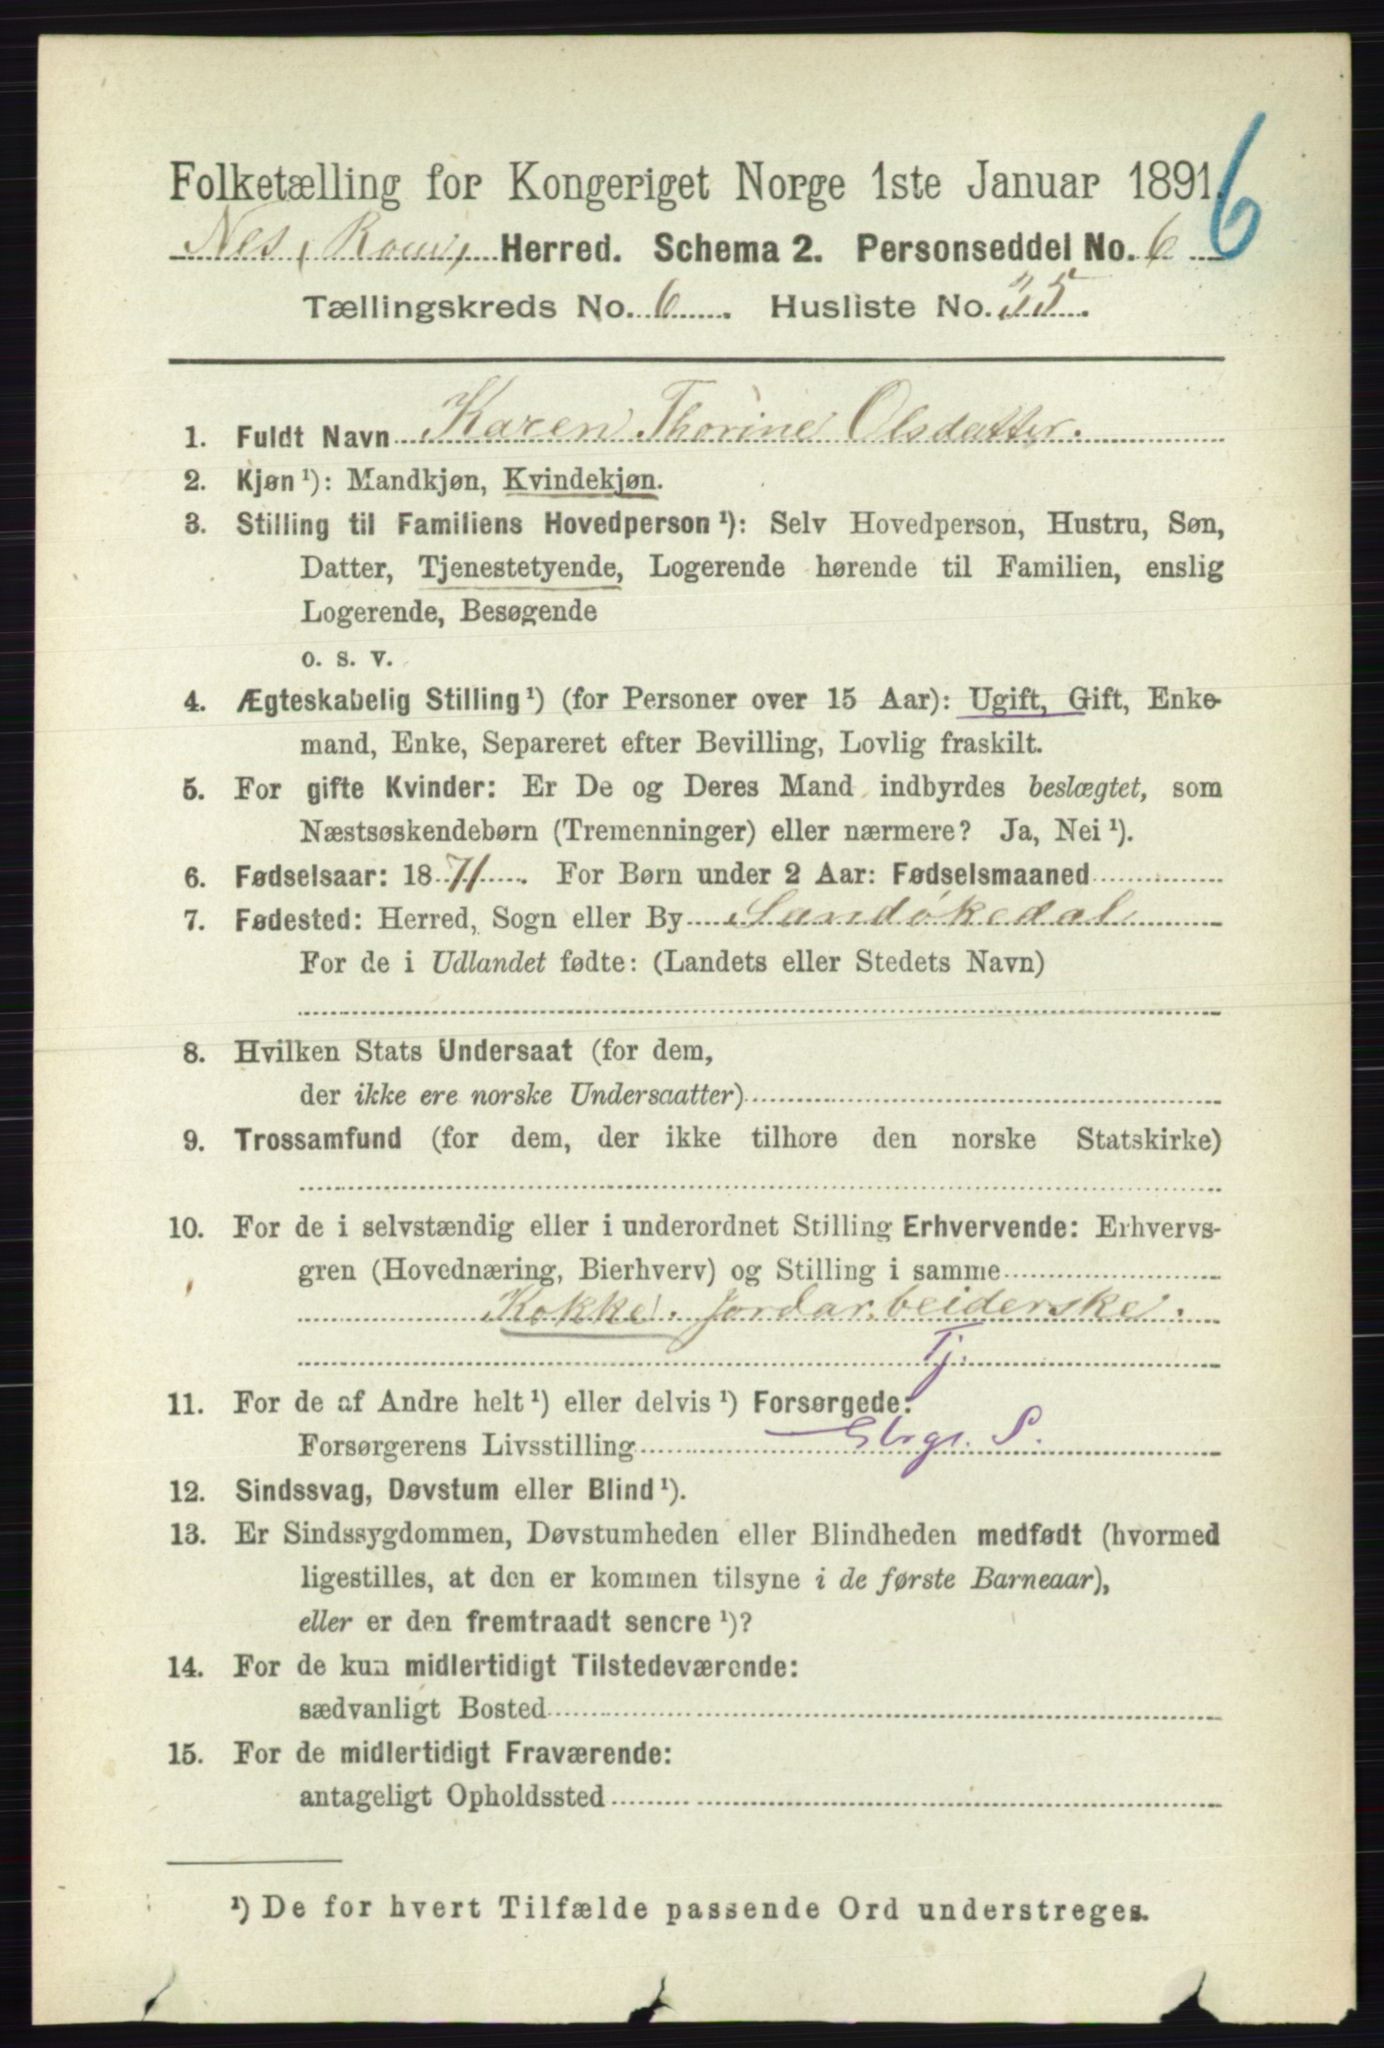 Folketælling for Kongeriget Norge 1ste Januar 1891.
6
Nes, Rom, Herred. Schema 2. Personseddel No. 6
Tællingskreds No. 6. Husliste No. 35.
1. Fuldt Navn Karen Thorine Olsdatter.
2. Kjøn ¹): Mandkjøn, Kvindekjøn.
3. Stilling til Familiens Hovedperson ¹): Selv Hovedperson, Hustru, Søn,
Datter, Tjenestetyende, Logerende hørende til Familien, enslig
Logerende, Besøgende
o. s. v.
4. Ægteskabelig Stilling ¹) (for Personer over 15 Aar): Ugift, Gift, Enke-
mand, Enke, Separeret efter Bevilling, Lovlig fraskilt.
5. For gifte Kvinder: Er De og Deres Mand indbyrdes beslægtet, som
Næstsøskendebørn (Tremenninger) eller nærmere? Ja, Nei ¹).
6. Fødselsaar: 1871. For Børn under 2 Aar: Fødselsmaaned
7. Fødested: Herred, Sogn eller By Sandøkedal
For de i Udlandet fødte: (Landets eller Stedets Navn)
8. Hvilken Stats Undersaat (for dem,
der ikke ere norske Undersaatter)
9. Trossamfund (for dem, der ikke tilhøre den norske Statskirke)
10. For de i selvstændig eller i underordnet Stilling Erhvervende: Erhvervs-
gren (Hovednæring, Bierhverv) og Stilling i samme
Kokke. Jordarbeiderske.
Tj.
11. For de af Andre helt ¹) eller delvis ¹) Forsørgede:
Forsørgerens Livsstilling S.
12. Sindssvag, Døvstum eller Blind ¹).
13. Er Sindssygdommen, Døvstumheden eller Blindheden medfødt (hvormed
ligestilles, at den er kommen tilsyne i de første Barneaar),
eller er den fremtraadt senere ¹)?
14. For de kun midlertidigt Tilstedeværende:
sædvanligt Bosted
15. For de midlertidigt Fraværende:
antageligt Opholdssted
¹) De for hvert Tilfælde passende Ord understreges.